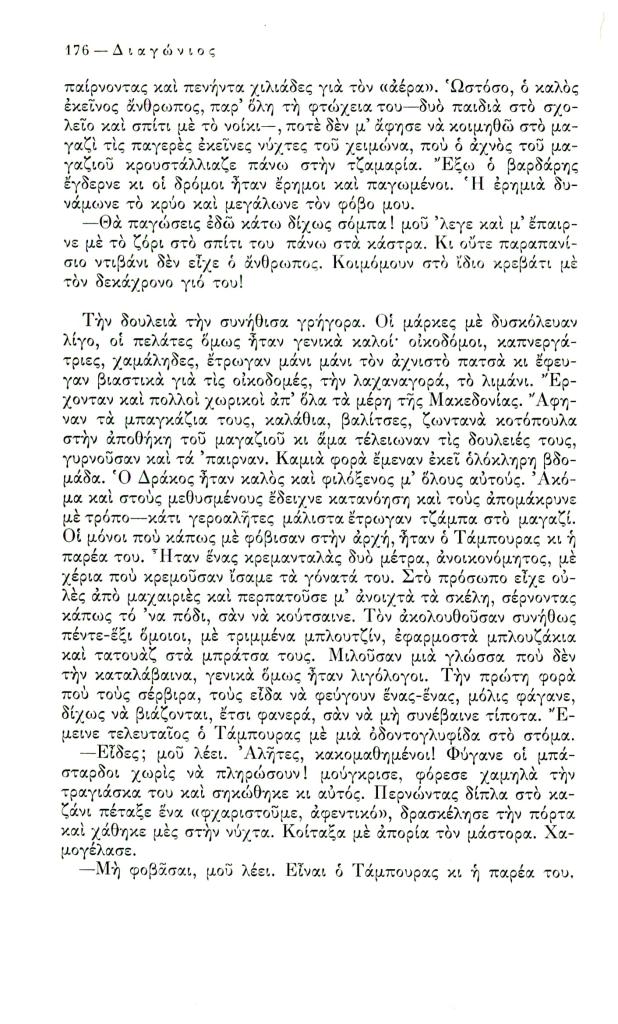 176 — Διαγώνιος
παίρνοντας καὶ πενήντα χιλιάδες γιὰ τὸν «ἀέρα». Ὡστόσο, ὁ καλὸς
ἐκεῖνος ἄνθρωπος, παρ' ὅλη τὴ φτώχεια του—δυὸ παιδιὰ στὸ σχο-
λεῖο καὶ σπίτι μὲ τὸ νοίκι—, ποτὲ δὲν μ' ἄφησε νὰ κοιμηθῶ στὸ μα-
γαζὶ τὶς παγερὲς ἐκεῖνες νύχτες τοῦ χειμώνα, ποὺ ὁ ἀχνὸς τοῦ μα-
γαζιοῦ κρουστάλλιαζε πάνω στὴν τζαμαρία. Ἔξω ὁ βαρδάρης
ἔγδερνε κι οἱ δρόμοι ἦταν ἔρημοι καὶ παγωμένοι. Ἡ ἐρημιὰ δυ-
νάμωνε τὸ κρύο καὶ μεγάλωνε τὸν φόβο μου.
—Θὰ παγώσεις ἐδῶ κάτω δίχως σόμπα! μοῦ 'λεγε καὶ μ' ἔπαιρ-
νε μὲ τὸ ζόρι στὸ σπίτι του πάνω στὰ κάστρα. Κι οὔτε παραπανί-
σιο ντιβάνι δὲν εἶχε ὁ ἄνθρωπος. Κοιμόμουν στὸ ἴδιο κρεβάτι μὲ
τὸν δεκάχρονο γιό του!
Τὴν δουλειὰ τὴν συνήθισα γρήγορα. Οἱ μάρκες μὲ δυσκόλευαν
λίγο, οἱ πελάτες ὅμως ἦταν γενικὰ καλοί· οἰκοδόμοι, καπνεργά-
τριες, χαμάληδες, ἔτρωγαν μάνι μάνι τὸν ἀχνιστὸ πατσὰ κι ἔφευ-
γαν βιαστικὰ γιὰ τὶς οἰκοδομές, τὴν λαχαναγορά, τὸ λιμάνι. Ἔρ-
χονταν καὶ πολλοὶ χωρικοὶ ἀπ' ὅλα τὰ μέρη τῆς Μακεδονίας. Ἄφη-
ναν τὰ μπαγκάζια τους, καλάθια, βαλίτσες, ζωντανὰ κοτόπουλα
στὴν ἀποθήκη τοῦ μαγαζιοῦ κι ἅμα τέλειωναν τὶς δουλειές τους,
γυρνοῦσαν καὶ τά 'παιρναν. Καμιὰ φορὰ ἔμεναν ἐκεῖ ὁλόκληρη βδο-
μάδα. Ὁ Δράκος ἦταν καλὸς καὶ φιλόξενος μ' ὅλους αὐτούς. Ἀκό-
μα καὶ στοὺς μεθυσμένους ἔδειχνε κατανόηση καὶ τοὺς ἀπομάκρυνε
μὲ τρόπο—κάτι γεροαλῆτες μάλιστα ἔτρωγαν τζάμπα στὸ μαγαζί.
Οἱ μόνοι ποὺ κάπως μὲ φόβισαν στὴν ἀρχή, ἦταν ὁ Τάμπουρας κι ἡ
παρέα του. Ἦταν ἕνας κρεμανταλὰς δυὸ μέτρα, ἀνοικονόμητος, μὲ
χέρια ποὺ κρεμοῦσαν ἴσαμε τὰ γόνατά του. Στὸ πρόσωπο εἶχε οὐ-
λὲς ἀπὸ μαχαιριὲς καὶ περπατοῦσε μ' ἀνοιχτὰ τὰ σκέλη, σέρνοντας
κάπως τό 'να πόδι, σὰν νὰ κούτσαινε. Τὸν ἀκολουθοῦσαν συνήθως
πέντε-ἕξι ὅμοιοι, μὲ τριμμένα μπλουτζίν, ἐφαρμοστὰ μπλουζάκια
καὶ τατουὰζ στὰ μπράτσα τους. Μιλοῦσαν μιὰ γλώσσα ποὺ δὲν
τὴν καταλάβαινα, γενικὰ ὅμως ἦταν λιγόλογοι. Τὴν πρώτη φορὰ
ποὺ τοὺς σέρβιρα, τοὺς εἶδα νὰ φεύγουν ἕνας-ἕνας, μόλις φάγανε,
δίχως νὰ βιάζονται, ἔτσι φανερά, σὰν νὰ μὴ συνέβαινε τίποτα. Ἔ-
μεινε τελευταῖος ὁ Τάμπουρας μὲ μιὰ ὀδοντογλυφίδα στὸ στόμα.
—Εἶδες; μοῦ λέει. Ἀλῆτες, κακομαθημένοι! Φύγανε οἱ μπά-
σταρδοι χωρὶς νὰ πληρώσουν! μούγκρισε, φόρεσε χαμηλὰ τὴν
τραγιάσκα του καὶ σηκώθηκε κι αὐτός. Περνώντας δίπλα στὸ κα-
ζάνι πέταξε ἕνα «φχαριστοῦμε, ἀφεντικό», δρασκέλησε τὴν πόρτα
καὶ χάθηκε μὲς στὴν νύχτα. Κοίταξα μὲ ἀπορία τὸν μάστορα. Χα-
μογέλασε.
—Μὴ φοβᾶσαι, μοῦ λέει. Εἶναι ὁ Τάμπουρας κι ἡ παρέα του.